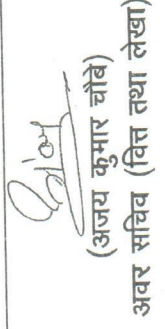 (अजय कुमार चौबे)
अवर सचिव (वित्त तथा लेखा)